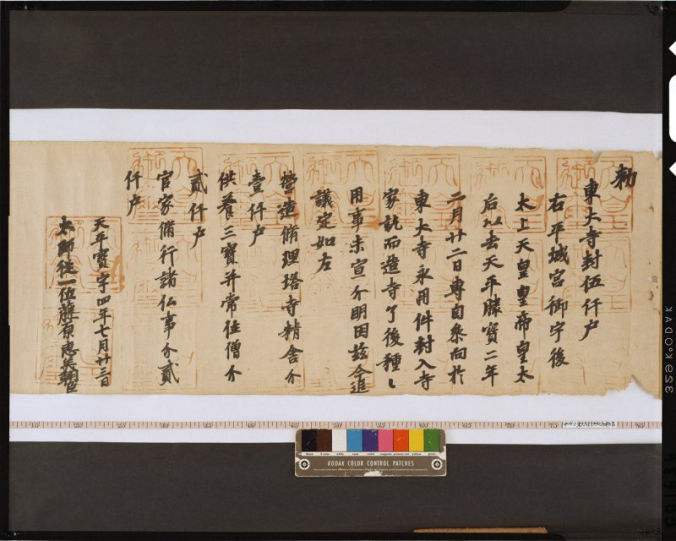 勅
東大寺封伍仟戸
右平城宮御宇後
太上天皇皇帝皇太
后以去天平勝寶二年
二月廿二日專自参向於
東大寺永用件封入寺
家訖而造寺了後種々
用事未宣分明因茲今追
議定如左
營造修理塔寺精舎分
壹仟戸
供養三寶并常住僧分
貳仟戸
官家修行諸仏事分貳
仟戸
天平寶字四年七月廿三日
太師從一位藤原惠美朝臣
KODAK COLOR CONTROL PATCHES